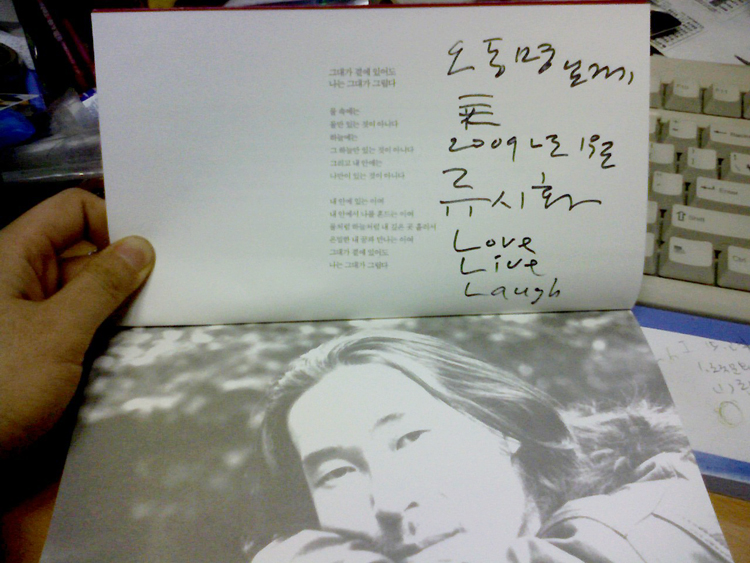 그대가 곁에 있어도
나는 그대가 그립다
물 속에는
물만 있는 것이 아니다
하늘에는
그 하늘만 있는 것이 아니다
그리고 내 안에는
나만이 있는 것이 아니다
내 안에 있는 이여
내 안에서 나를 흔드는 이여
물처럼 하늘처럼 내 깊은 곳 흘러서
은밀한 내 꿈과 만나는 이여
그대가 곁에 있어도
나는 그대가 그립다
오동명 님께,
2009년 1월
류시화
Love
Live
Laugh
Shift
Enter
Ctrl